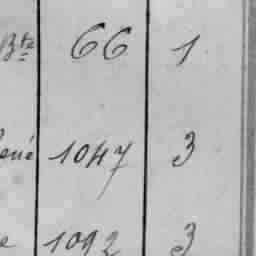 Bte 66 1
ené 1047 3
e 1092 3